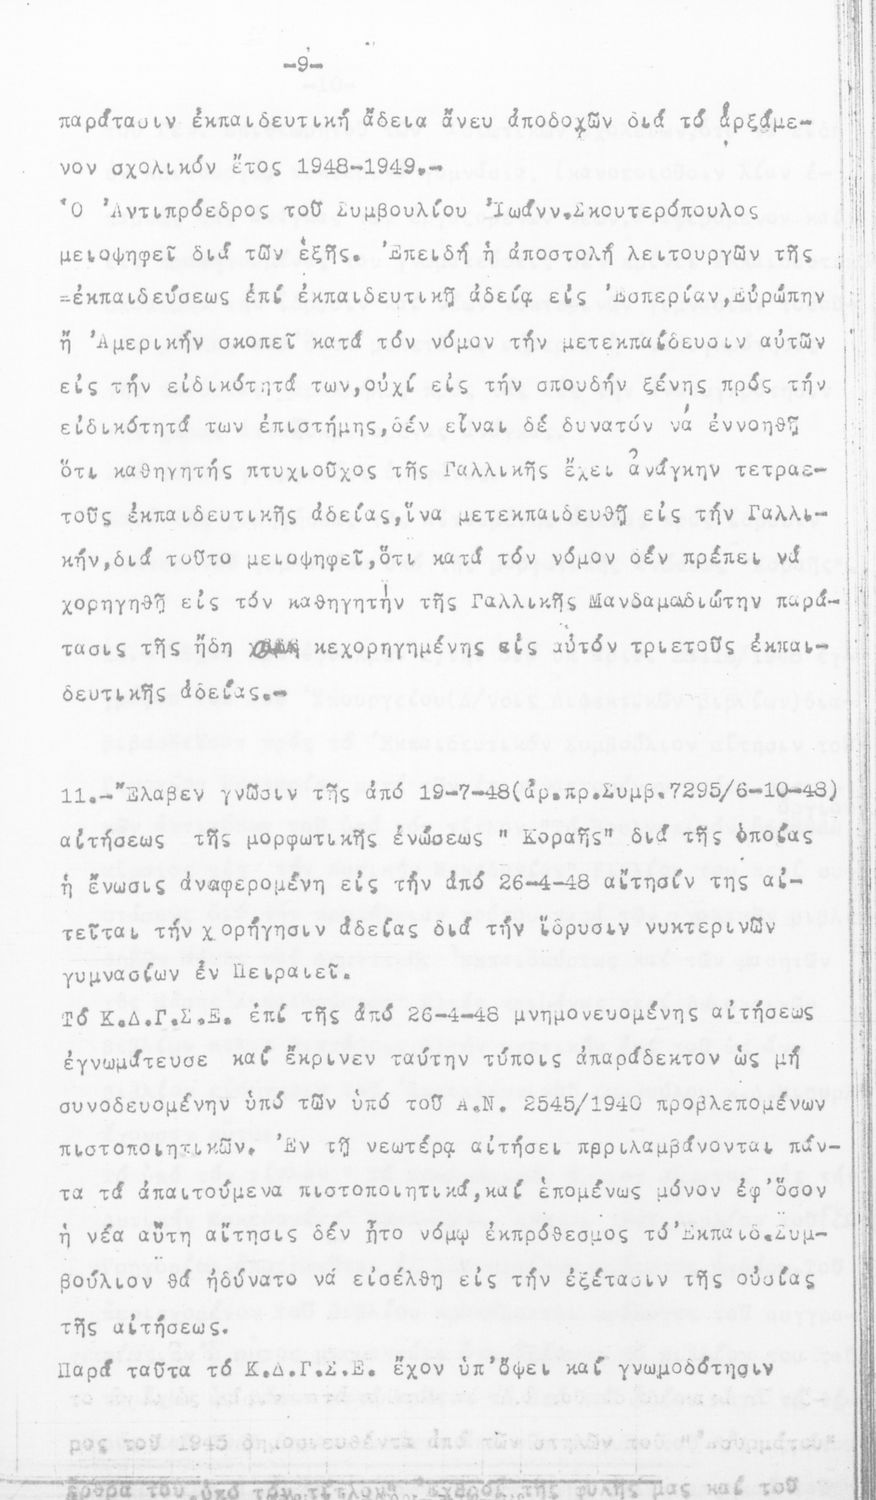 -9-
παράτασιν ἐκπαιδευτική ἄδεια ἄνευ ἀποδοχῶν διά τό ἀρξάμε-
νον σχολικόν ἔτος 1948-1949.-
Ὁ Ἀντιπρόεδρος τοῦ Συμβουλίου Ἰωάνν.Σκουτερόπουλος
μειοψηφεῖ διά τῶν ἑξῆς. Ἐπειδή ἡ ἀποστολή λειτουργῶν τῆς
=ἐκπαιδεύσεως ἐπί ἐκπαιδευτικῇ ἀδείᾳ εἰς Ἑσπερίαν,Εὐρώπην
ἤ Ἀμερικήν σκοπεῖ κατά τόν νόμον τήν μετεκπαίδευσιν αὐτῶν
εἰς τήν εἰδικότητά των,οὐχί εἰς τήν σπουδήν ξένης πρός τήν
εἰδικότητά των ἐπιστήμης,δέν εἶναι δέ δυνατόν νά ἐννοηθῇ
ὅτι καθηγητής πτυχιοῦχος τῆς Γαλλικῆς ἔχει ἀνάγκην τετραε-
τοῦς ἐκπαιδευτικῆς ἀδείας,ἵνα μετεκπαιδευθῇ εἰς τήν Γαλλι-
κήν,διά τοῦτο μειοψηφεῖ,ὅτι κατά τόν νόμον δέν πρέπει νά
χορηγηθῇ εἰς τόν καθηγητήν τῆς Γαλλικῆς Μανδαμαδιώτην παρά-
τασις τῆς ἤδη κεχορηγημένης εἰς αὐτόν τριετοῦς ἐκπαι-
δευτικῆς ἀδείας.-
11.-Ἔλαβεν γνῶσιν τῆς ἀπό 19-7-48(ἀρ.πρ.Συμβ.7295/6-10-48)
αἰτήσεως τῆς μορφωτικῆς ἑνώσεως " Κοραῆς" διά τῆς ὁποίας
ἡ ἕνωσις ἀναφερομένη εἰς τήν ἀπό 26-4-48 αἴτησίν της αἰ-
τεῖται τήν χορήγησιν ἀδείας διά τήν ἵδρυσιν νυκτερινῶν
γυμνασίων ἐν Πειραιεῖ.
Τό Κ.Δ.Γ.Σ.Ε. ἐπί τῆς ἀπό 26-4-48 μνημονευομένης αἰτήσεως
ἐγνωμάτευσε καί ἔκρινεν ταύτην τύποις ἀπαράδεκτον ὡς μή
συνοδευομένην ὑπό τῶν ὑπό τοῦ Α.Ν. 2545/1940 προβλεπομένων
πιστοποιητικῶν. Ἐν τῇ νεωτέρᾳ αἰτήσει περιλαμβάνονται πάν-
τα τά ἀπαιτούμενα πιστοποιητικά,καί ἑπομένως μόνον ἐφ'ὅσον
ἡ νέα αὕτη αἴτησις δέν ἦτο νόμῳ ἐκπρόθεσμος τό Ἐκπαιδ.Συμ-
βούλιον θά ἠδύνατο νά εἰσέλθῃ εἰς τήν ἐξέτασιν τῆς οὐσίας
τῆς αἰτήσεως.
Παρά ταῦτα τό Κ.Δ.Γ.Σ.Ε. ἔχον ὑπ'ὄψει καί γνωμοδότησιν